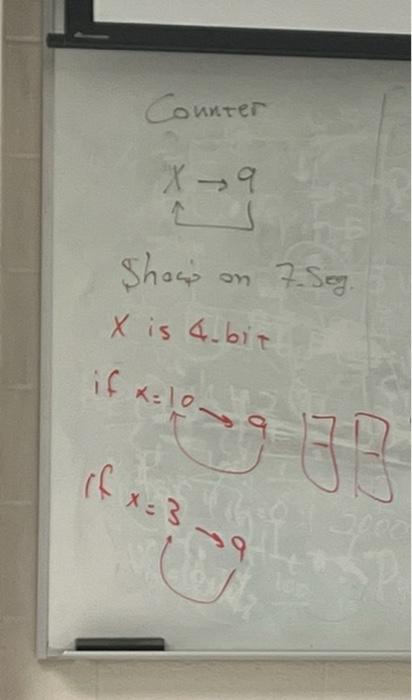 Counter
X → 9
Show on 7-Seg.
X is 4-bit
if x=10 → 9
if x=3 → 9